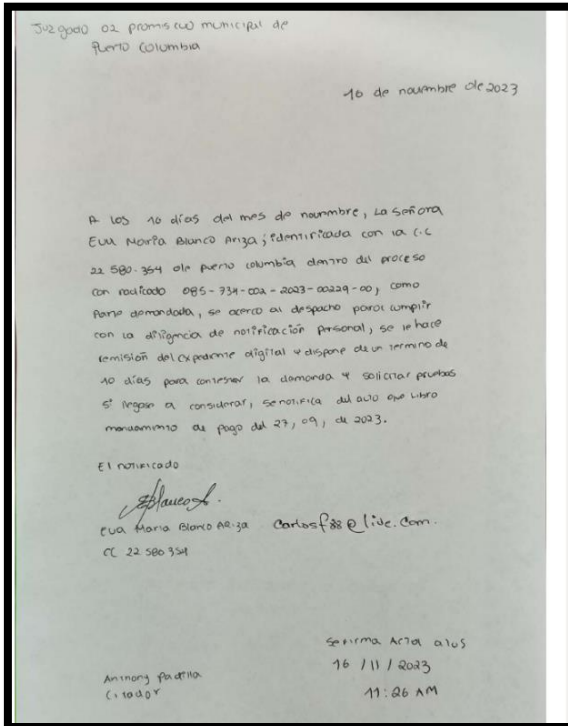 Juzgado 02 promiscuo municipal de
Puerto Columbia
16 de noviembre de 2023
A los 16 días del mes de noviembre, La señora
Eva Maria Blanco Ariza; identificada con la C.C
22 580.354 de puerto columbia dentro del proceso
con radicado 085-734-002-2023-00229-00, como
Parte demandada, se acerco al despacho para cumplir
con la diligencia de notificación personal, se le hace
remisión del expediente digital y dispone de un termino de
10 días para contestar la demanda y solicitar pruebas
si llegase a considerar, se notifica del auto que libro
mandamiento de pago del 27, 09, de 2023.
El notificado
EBlanco A.
Eva Maria Blanco Ariza Carlosf88@live.com.
CC 22 580 354
se firma Acta a los
16 / 11 / 2023
11:26 AM
Anthony Padilla
Citador